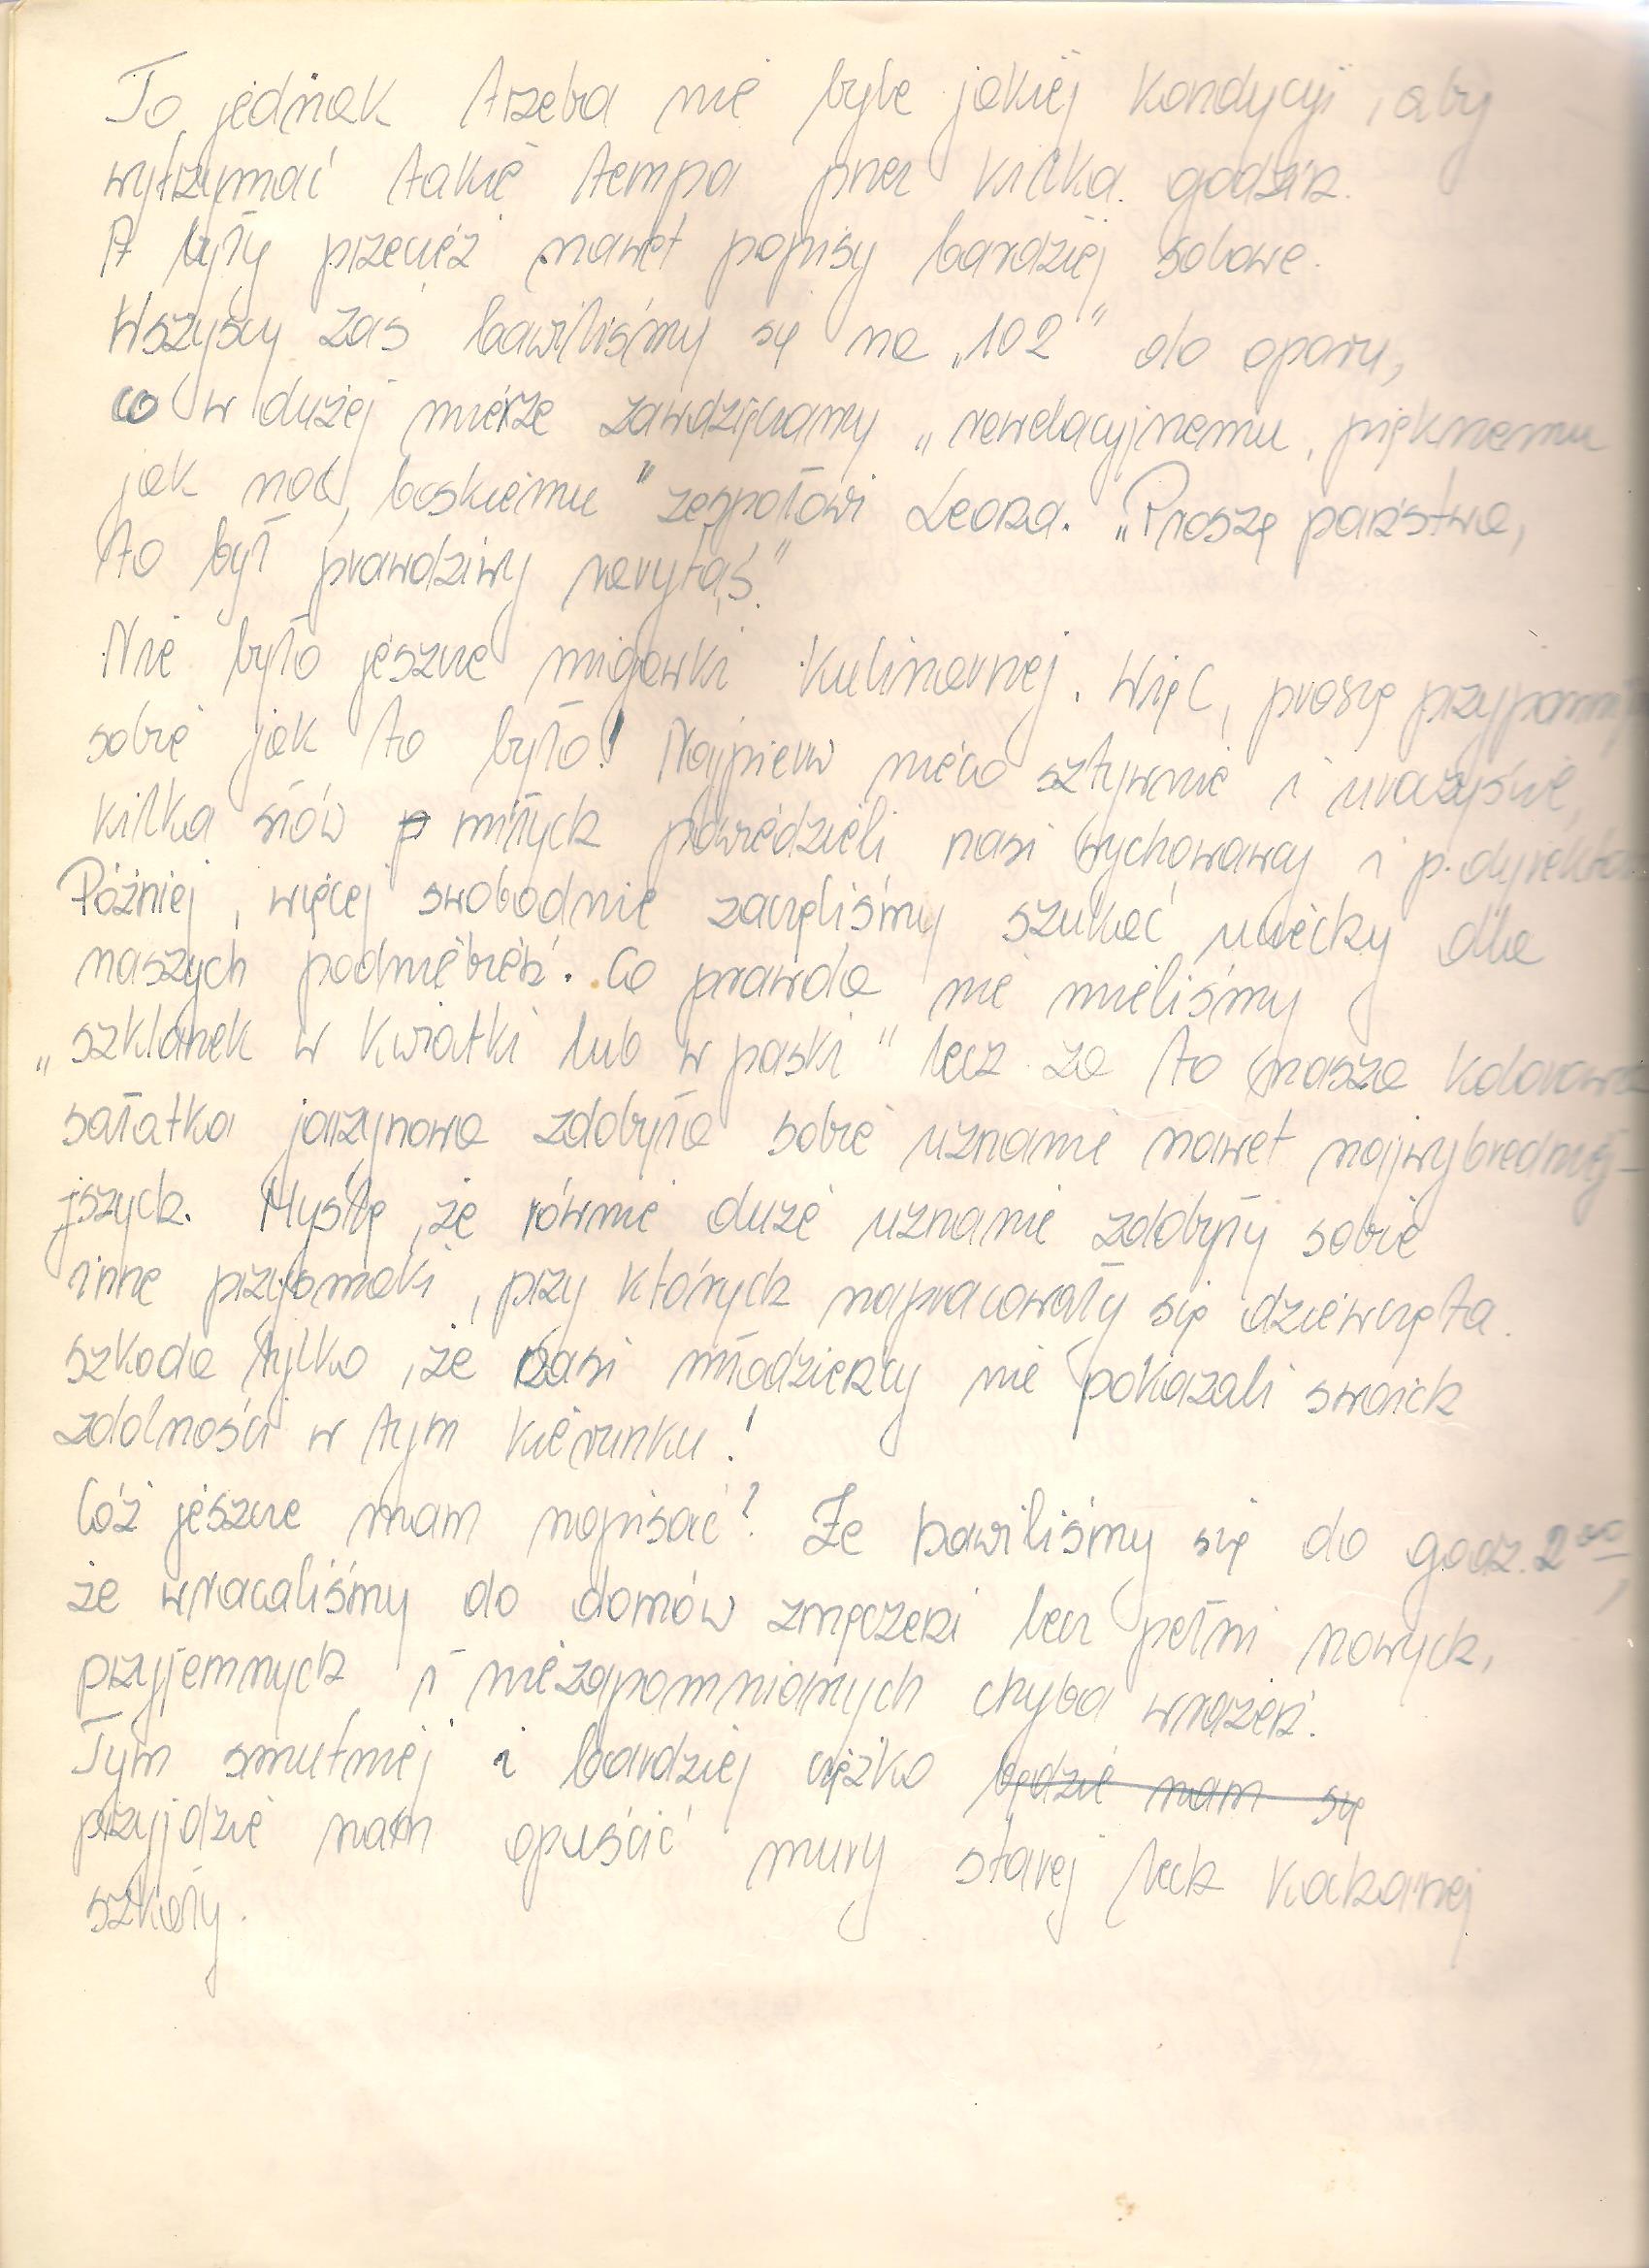 To jednak trzeba nie byle jakiej kondycji, aby
wytrzymać takie tempa przez kilka godzin.
A były przecież nawet popisy bardziej solowe.
Wszyscy zaś bawiliśmy się na „102" do oporu,
co w dużej mierze zawdzięczamy „rewelacyjnemu, pięknemu
jak noc, boskiemu" zespołowi Leona. „Proszę państwa,
to był prawdziwy rarytaś."
Nie było jeszcze migawki kulinarnej. Więc, proszę
sobie jak to było! Najpierw nieco sztywnie i uroczyście,
kilka słów p miłych powiedzieli nasi wychowawcy i p. dyrektor
Później, więcej swobodnie zaczęliśmy szukać uciechy dla
naszych podniebień. Co prawda nie mieliśmy
„szklanek w kwiatki lub w paski" lecz za to nasza kolorowa
sałatka jarzynowa zdobyła sobie uznanie nawet najwybredniej-
jszych. Myślę, że równie duże uznanie zdobyły sobie
inne przysmaki, przy których napracowały się dziewczęta.
szkoda tylko, że nasi młodzieńcy nie pokazali swoich
zdolności w tym kierunku!
Cóż jeszcze mam napisać? Że bawiliśmy się do godz. 2⁰⁰,
że wracaliśmy do domów zmęczeni lecz pełni nowych,
przyjemnych i niezapomnianych chyba wrażeń.
Tym smutniej i bardziej ciężko będzie nam się
przyjdzie nam opuścić mury starej lecz kochanej
szkoły.